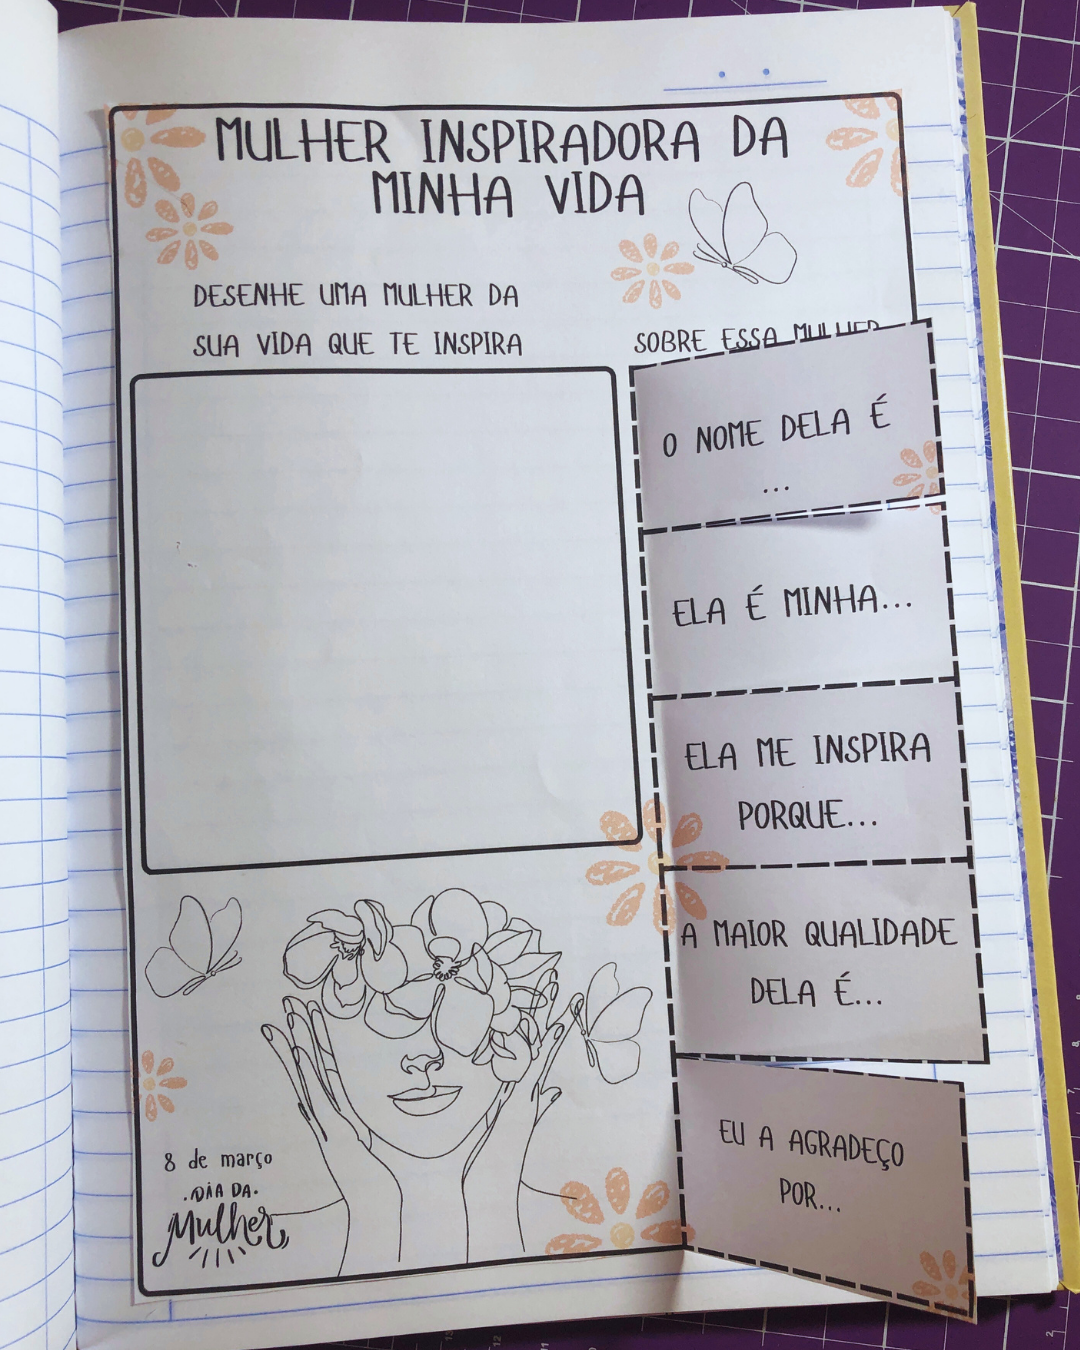 MULHER INSPIRADORA DA
MINHA VIDA
DESENHE UMA MULHER DA
SUA VIDA QUE TE INSPIRA
SOBRE ESSA MULHER
O NOME DELA É
...
ELA É MINHA...
ELA ME INSPIRA
PORQUE...
A MAIOR QUALIDADE
DELA É...
EU A AGRADEÇO
POR...
8 de março
.DIA DA.
Mulher